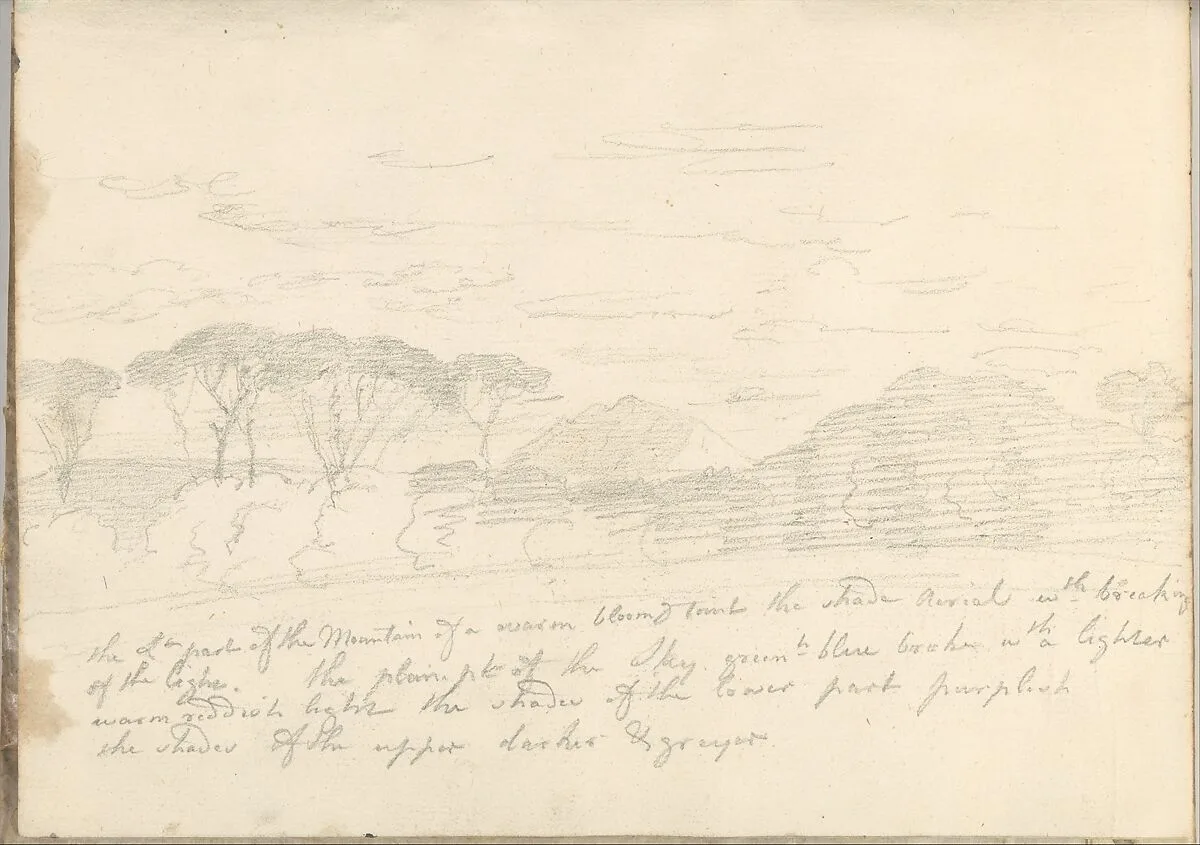 the part of the Mountain of a warm bloomy tint the shade Aerial wth breaking
of the light. the plain pt of the Sky greenh blue broke wth a lighter
warm reddish light the shades of the lower part purplish
the shades of the upper darker & greyer